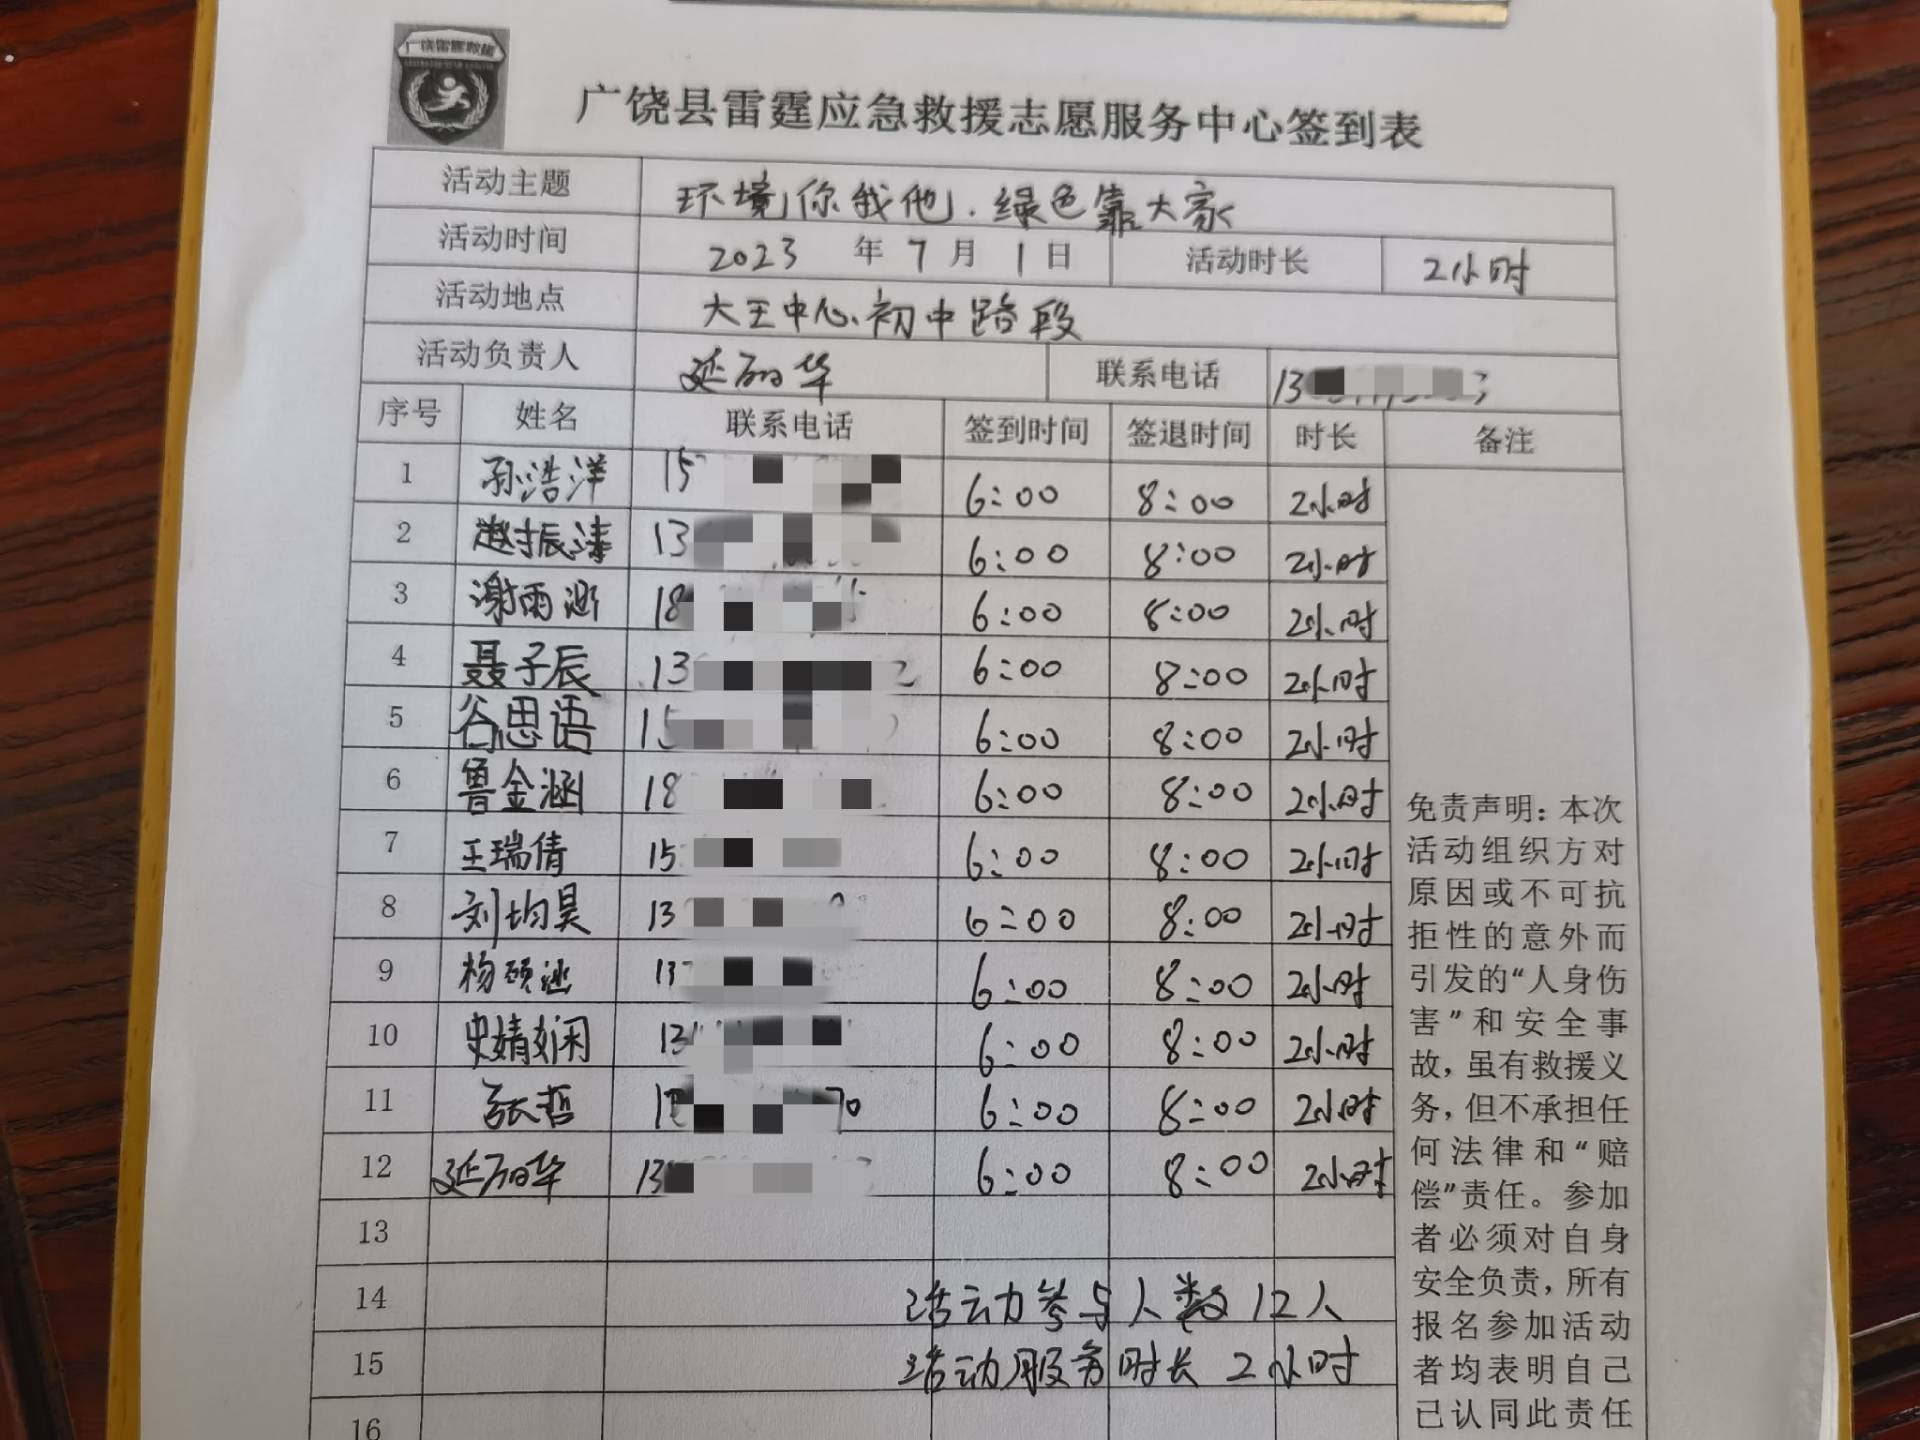 广饶雷霆救援
广饶县雷霆应急救援志愿服务中心签到表
活动主题 环境你我他.绿色靠大家
活动时间 2023 年 7 月 1 日 活动时长 2小时
活动地点 大王中心初中路段
活动负责人 延丽华 联系电话 13
序号 姓名 联系电话 签到时间 签退时间 时长 备注
1 孙浩洋 15 6:00 8:00 2小时
2 赵振涛 13 6:00 8:00 2小时
3 谢雨 18 6:00 8:00 2小时
4 聂子辰 13 2 6:00 8:00 2小时
5 谷思语 15 6:00 8:00 2小时
6 鲁金涵 18 6:00 8:00 2小时
7 王瑞倩 15 6:00 8:00 2小时
8 刘均昊 13 6:00 8:00 2小时
9 杨硕涵 13 6:00 8:00 2小时
10 史婧娴 13 6:00 8:00 2小时
11 张哲 1 70 6:00 8:00 2小时
12 延丽华 13 6:00 8:00 2小时
13
14 活动参与人数12人
15 活动服务时长 2小时
16
免责声明：本次
活动组织方对
原因或不可抗
拒性的意外而
引发的“人身伤
害”和安全事
故，虽有救援义
务，但不承担任
何法律和“赔
偿”责任。参加
者必须对自身
安全负责，所有
报名参加活动
者均表明自己
已认同此责任